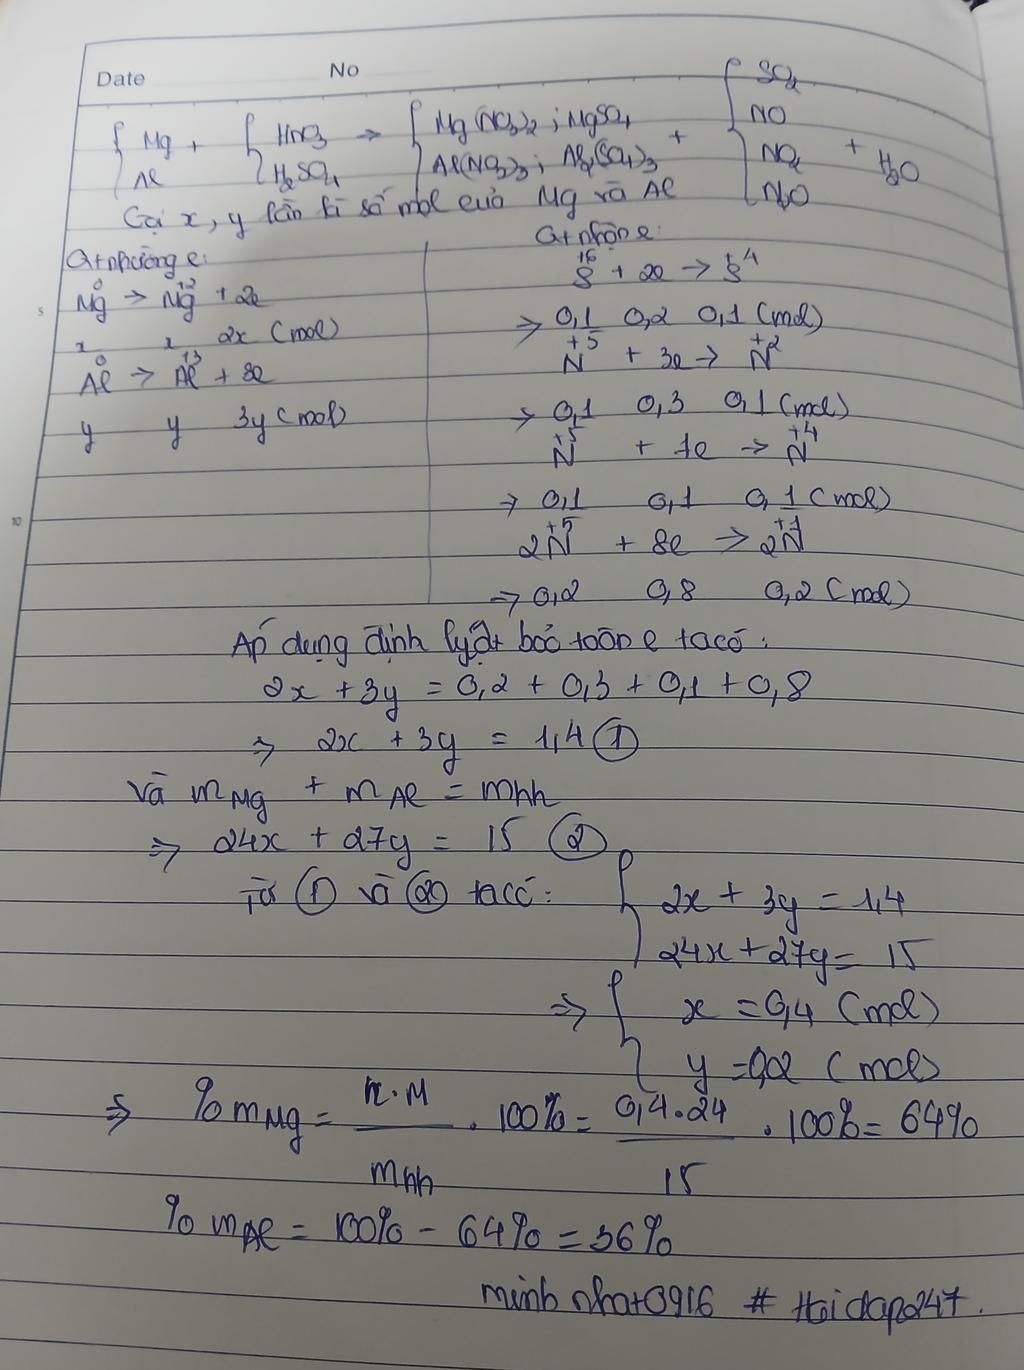 Date No
{ Mg + { HNO3 → { Mg(NO3)2 ; MgSO4 + { SO2
Al H2SO4 Al(NO3)3 ; Al2(SO4)3 NO
NO2 + H2O
N2O
Gọi x, y lần lượt số mol của Mg và Al
Qt nhường e:
Mg⁰ → Mg⁺² + 2e
x x 2x (mol)
Al⁰ → Al⁺³ + 3e
y y 3y (mol)
Qt nhận e:
S⁺⁶ + 2e → S⁺⁴
⇒ 0,1 0,2 0,1 (mol)
N⁺⁵ + 3e → N⁺²
⇒ 0,1 0,3 0,1 (mol)
N⁺⁵ + 1e → N⁺⁴
⇒ 0,1 0,1 0,1 (mol)
2N⁺⁵ + 8e → 2N⁺¹
⇒ 0,2 0,8 0,2 (mol)
5
10
Áp dụng định luật bảo toàn e ta có:
2x + 3y = 0,2 + 0,3 + 0,1 + 0,8
⇒ 2x + 3y = 1,4 ①
Và mMg + mAl = mhh
⇒ 24x + 27y = 15 ②
Từ ① và ② ta có: { 2x + 3y = 1,4
24x + 27y = 15
⇒ { x = 0,4 (mol)
y = 0,2 (mol)
⇒ %mMg = n.M / mhh . 100% = 0,4.24 / 15 . 100% = 64%
%mAl = 100% - 64% = 36%
minhnhat0916 # Hoidap247.